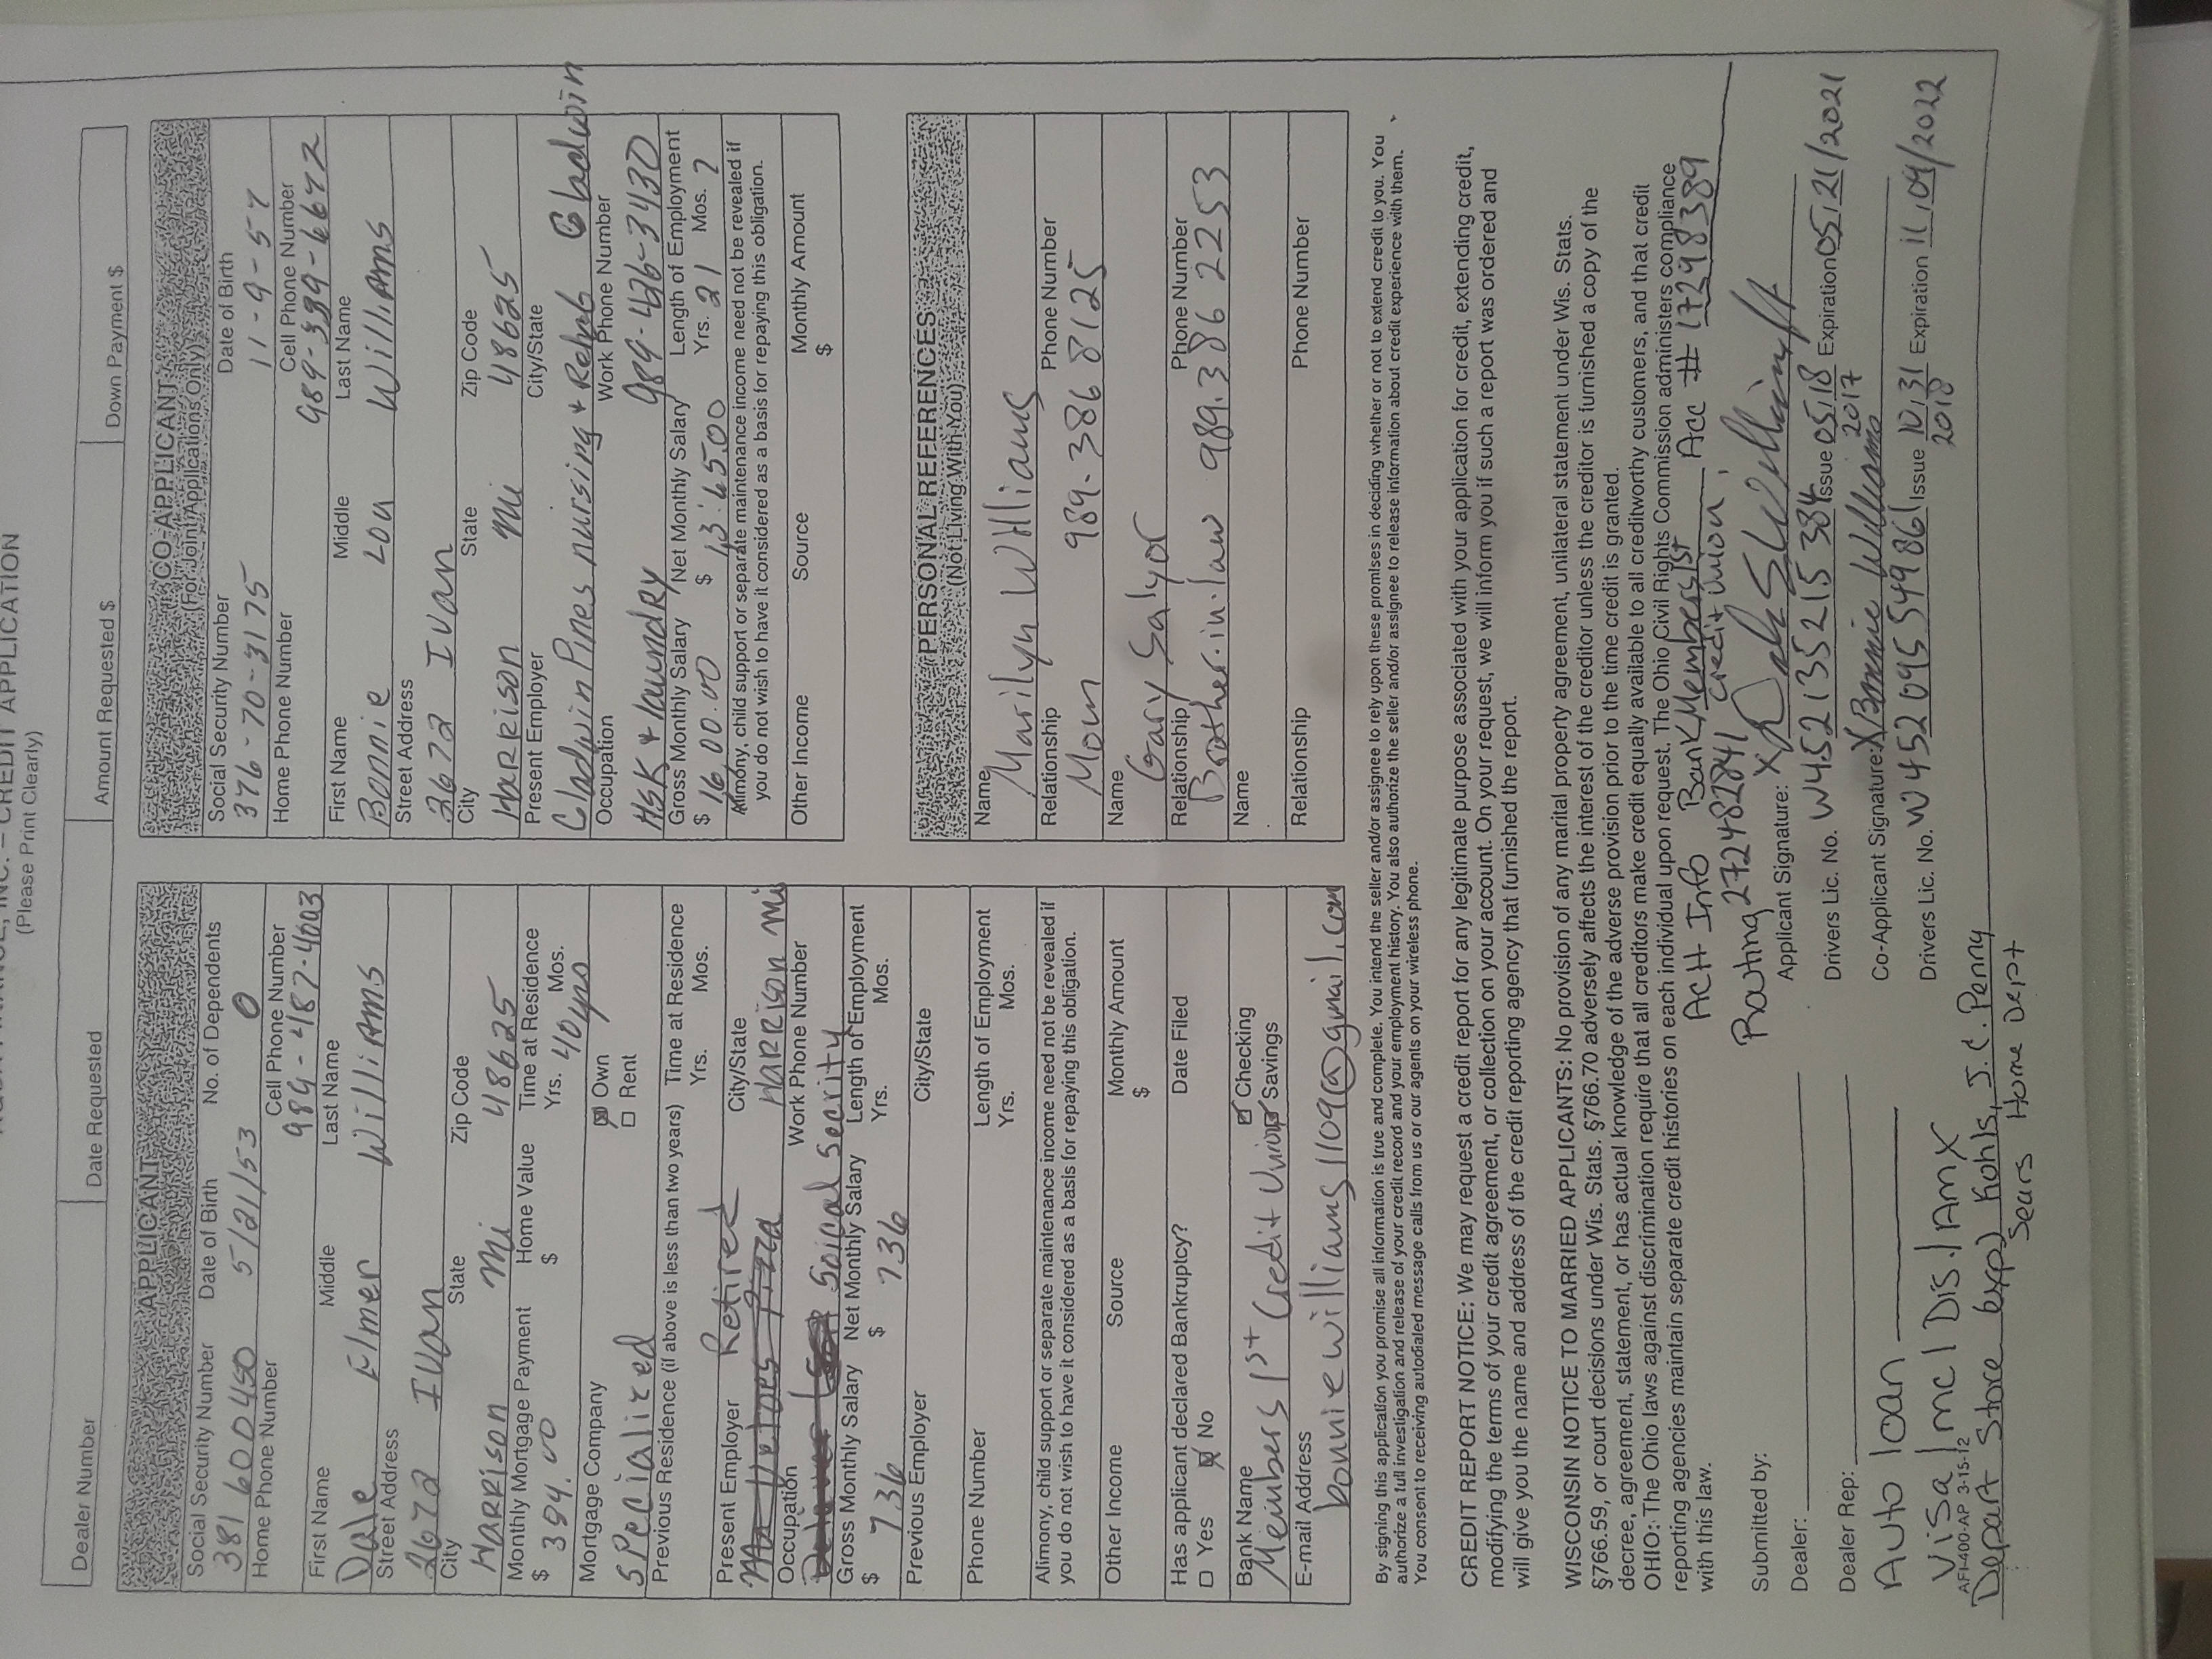 CREDIT APPLICATION
(Please Print Clearly)
Dealer Number
Date Requested
Amount Requested $
Down Payment $
APPLICANT
Social Security Number Date of Birth No. of Dependents
5/21/53 0
Home Phone Number Cell Phone Number
First Name Middle Last Name
Dale Elmer Williams
Street Address
2672 Ivan
City State Zip Code
Harrison Mi 48625
Monthly Mortgage Payment Home Value Time at Residence
$ $ Yrs. 40yrs Mos.
Mortgage Company
Specialized
Own
Rent
Previous Residence (if above is less than two years) Time at Residence
Yrs. Mos.
Present Employer City/State
Retired
HARRISON Mi
Occupation Work Phone Number
Soical Secrity
Gross Monthly Salary Net Monthly Salary Length of Employment
$ 736 $ 736 Yrs. Mos.
Previous Employer City/State
Phone Number Length of Employment
Yrs. Mos.
Alimony, child support or separate maintenance income need not be revealed if
you do not wish to have it considered as a basis for repaying this obligation.
Other Income Source Monthly Amount
$
Has applicant declared Bankruptcy? Date Filed
Yes No
Bank Name Checking
Members 1st Credit Union Savings
E-mail Address
bonniewilliams1109@gmail.com
CO-APPLICANT
(For Joint Applications Only)
Social Security Number Date of Birth
376-70-3175 11-9-57
Home Phone Number Cell Phone Number
First Name Middle Last Name
Bonnie Lou Williams
Street Address
2672 Ivan
City State Zip Code
HARRISON Mi 48625
Present Employer City/State
Gladwin Pines nursing & Rehab Gladwin
Occupation Work Phone Number
HSK & laundry 989-426-3430
Gross Monthly Salary Net Monthly Salary Length of Employment
$ 1600.00 $ Yrs. 21 Mos.
Alimony, child support or separate maintenance income need not be revealed if
you do not wish to have it considered as a basis for repaying this obligation.
Other Income Source Monthly Amount
$
PERSONAL REFERENCES
(Not Living With You)
Name
Marilyn Williams
Relationship Phone Number
Mom 989-386 8125
Name
Gary Salyor
Relationship Phone Number
Brother-in-law 989.386 2253
Name
Relationship Phone Number
By signing this application you promise all information is true and complete. You intend the seller and/or assignee to rely upon these promises in deciding whether or not to extend credit to you. You
authorize a full investigation and release of your credit record and your employment history. You also authorize the seller and/or assignee to release information about credit experience with them.
You consent to receiving autodialed message calls from us or our agents on your wireless phone.
CREDIT REPORT NOTICE: We may request a credit report for any legitimate purpose associated with your application for credit, extending credit,
modifying the terms of your credit agreement, or collection on your account. On your request, we will inform you if such a report was ordered and
will give you the name and address of the credit reporting agency that furnished the report.
WISCONSIN NOTICE TO MARRIED APPLICANTS: No provision of any marital property agreement, unilateral statement under Wis. Stats.
§766.59, or court decisions under Wis. Stats. §766.70 adversely affects the interest of the creditor unless the creditor is furnished a copy of the
decree, agreement, statement, or has actual knowledge of the adverse provision prior to the time credit is granted.
OHIO: The Ohio laws against discrimination require that all creditors make credit equally available to all creditworthy customers, and that credit
reporting agencies maintain separate credit histories on each individual upon request. The Ohio Civil Rights Commission administers compliance
with this law.
ACH Info Bank Members 1st Credit Union Acc # 17298389
Routing 272482841
Submitted by:
Applicant Signature: X
Dealer:
Drivers Lic. No. W452135215384 Issue 05,18 2017 Expiration 05,21/2021
Dealer Rep:
Co-Applicant Signature: X Bonnie Williams
Drivers Lic. No. W452095549861 Issue 10,31 2018 Expiration 11,09/2022
Auto loan
Visa/mc/Dis./Amx
AFI-400-AP 3-15-12
Depart Store (exp) Kohls, J.C. Penny
Sears Home Dept